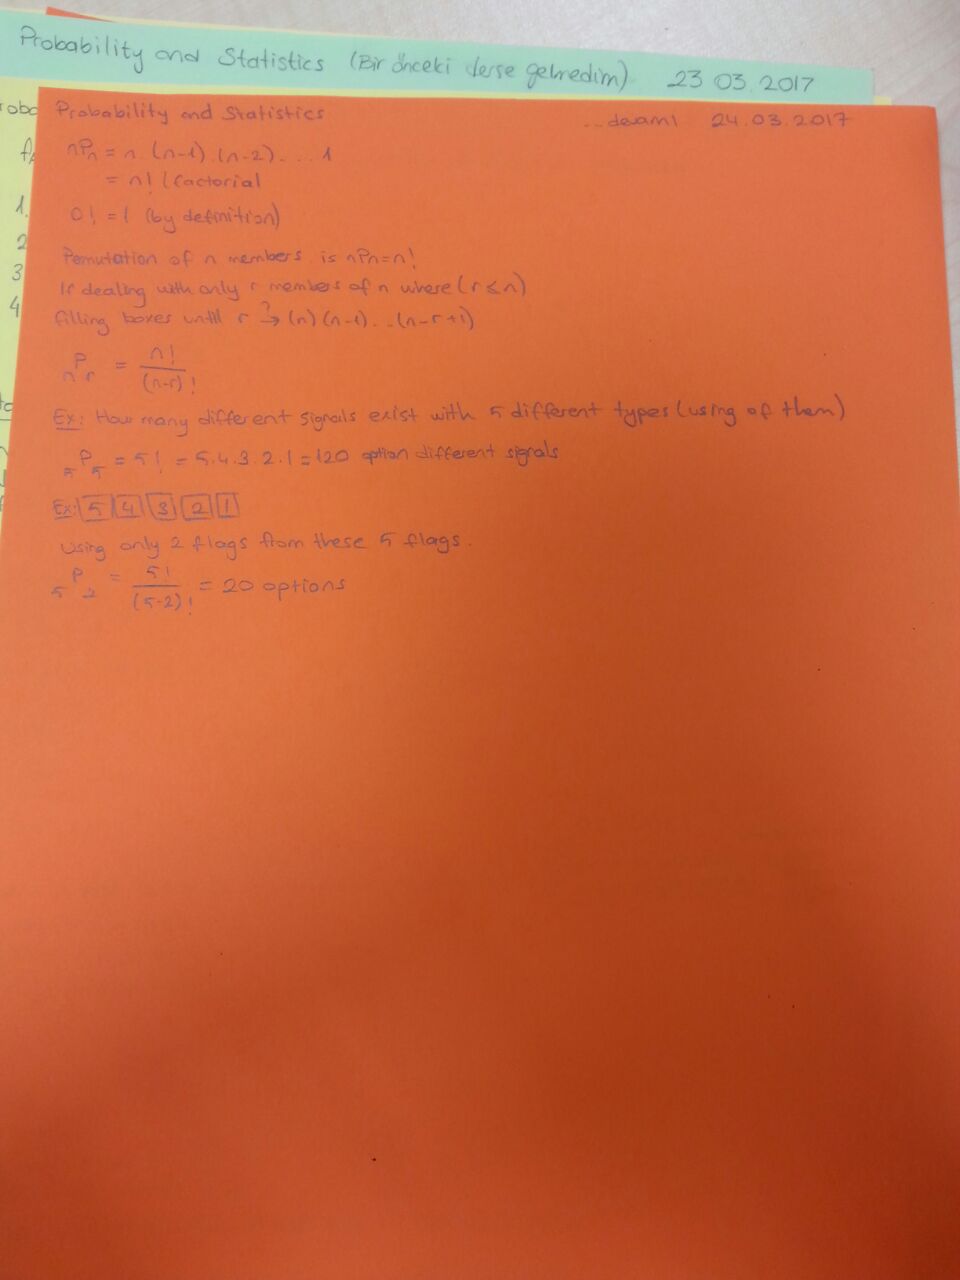 Probability and Statistics (Bir önceki derse gelmedim) 23 03. 2017
Probability and Statistics ...devamı 24.03.2017
nPn = n. (n-1). (n-2). ... 1
= n! (factorial
0! = 1 (by definition)
Pemutation of n members is nPn=n!
If dealing with only r members of n where (r≤n)
filling boxes until r → (n) (n-1)...(n-r+1)
nPr = n!/(n-r)!
Ex: How many different signals exist with 5 different types (using of them)
5P5 = 5! = 5.4.3.2.1 = 120 option different signals
Ex: 5 4 3 2 1
Using only 2 flags from these 5 flags.
5P2 = 5!/(5-2)! = 20 options
1.
2
3
4